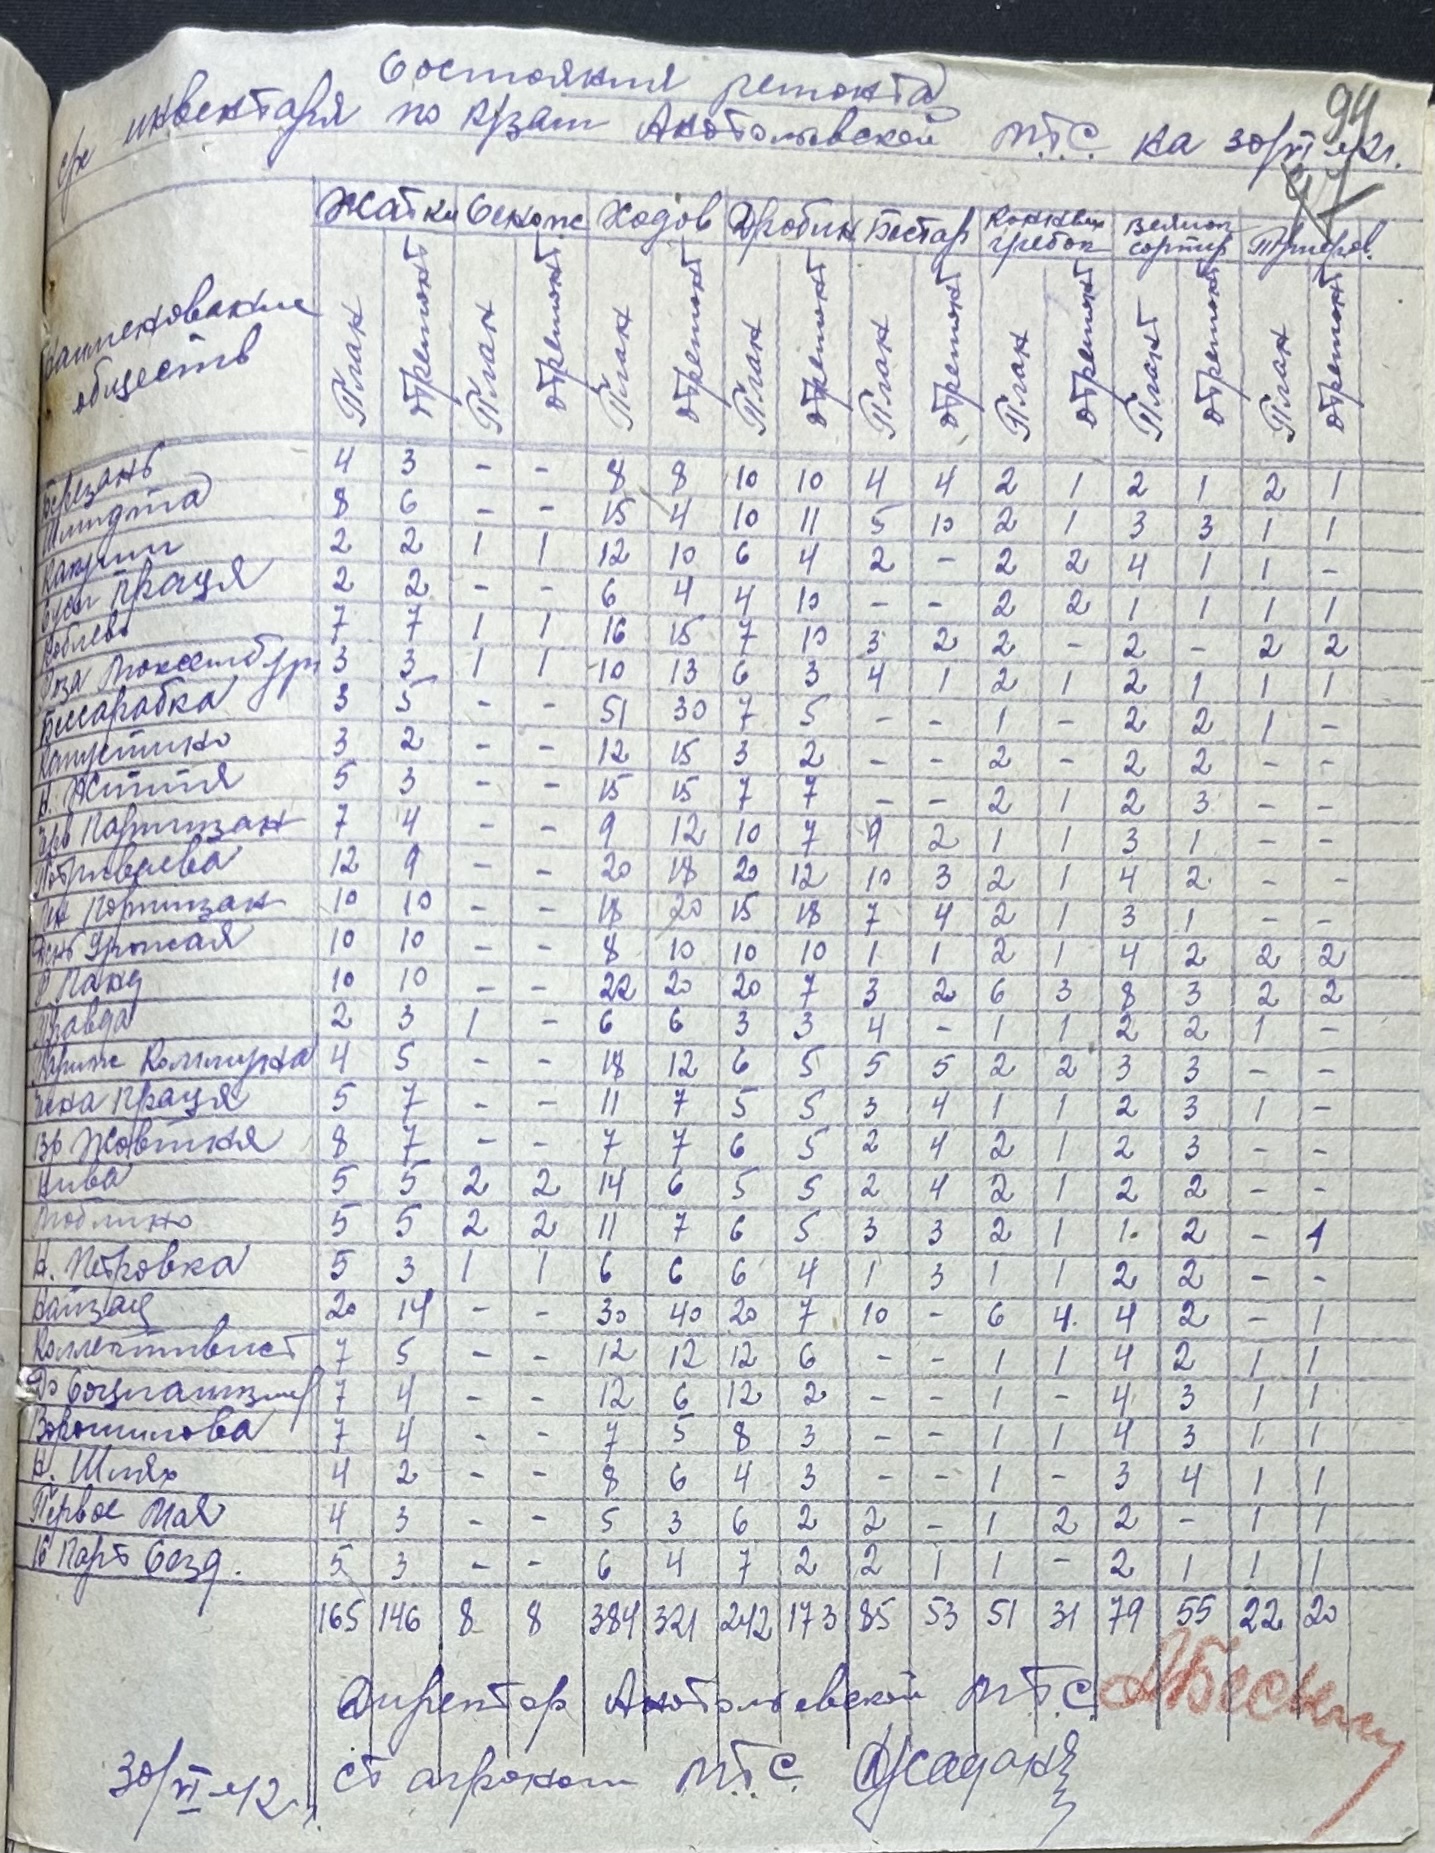 94
Состояния ремонта
с/х инвентаря по к/зам Анатольевской М.Т.С. на 30/VI-42г.
Наименование обществ Жатки Сенокос Ходов Дробин Бестар Конных гребок Веялок сортир Триеров.
План Отремонт План Отремонт План Отремонт План Отремонт План Отремонт План Отремонт План Отремонт План Отремонт
Березань 4 3 - - 8 8 10 10 4 4 2 1 2 1 2 1
Шмидта 8 6 - - 15 4 10 11 5 10 2 1 3 3 1 1
2 2 1 1 12 10 6 4 2 - 2 2 4 1 1 -
Праця 2 2 - - 6 4 4 10 - - 2 2 1 1 1 1
Коблево 7 7 1 1 16 15 7 10 3 2 2 - 2 - 2 2
Роза Люксембург 3 3 1 1 10 13 6 3 4 1 2 1 2 1 1 1
Бессарабка 3 5 - - 51 30 7 5 - - 1 - 2 2 1 -
Капустино 3 2 - - 12 15 3 2 - - 2 - 2 2 - -
Н. Життя 5 3 - - 15 15 7 7 - - 2 1 2 3 - -
Чрв Партизан 7 4 - - 9 12 10 7 9 2 1 1 3 1 - -
12 9 - - 20 18 20 12 10 3 2 1 4 2 - -
Партизан 10 10 - - 18 20 15 18 7 4 2 1 3 1 - -
День Урожая 10 10 - - 8 10 10 10 1 1 2 1 4 2 2 2
10 10 - - 22 20 20 7 3 2 6 3 8 3 2 2
Правда 2 3 1 - 6 6 3 3 4 - 1 1 2 2 1 -
Париж Коммуна 4 5 - - 18 12 6 5 5 5 2 2 3 3 - -
Праця 5 7 - - 11 7 5 5 3 4 1 1 2 3 1 -
Жовтня 8 7 - - 7 7 6 5 2 4 2 1 2 3 - -
Нива 5 5 2 2 14 6 5 5 2 4 2 1 2 2 - -
5 5 2 2 11 7 6 5 3 3 2 1 1. 2 - 1
Н. Петровка 5 3 1 1 6 6 6 4 1 3 1 1 2 2 - -
20 14 - - 30 40 20 7 10 - 6 4. 4 2 - 1
Коллективист 7 5 - - 12 12 12 6 - - 1 1 4 2 1 1
До Социализму 7 4 - - 12 6 12 2 - - 1 - 4 3 1 1
Ворошилова 7 4 - - 7 5 8 3 - - 1 1 4 3 1 1
Н. Шлях 4 2 - - 8 6 4 3 - - 1 - 3 4 1 1
Первое Мая 4 3 - - 5 3 6 2 2 - 1 2 2 - 1 1
16 Парт Сезд. 5 3 - - 6 4 7 2 2 1 1 - 2 1 1 1
165 146 8 8 384 321 242 173 85 53 51 31 79 55 22 20
Директор Анатольевской М.Т.С.
30/VI-42г. Ст агроном М.Т.С.